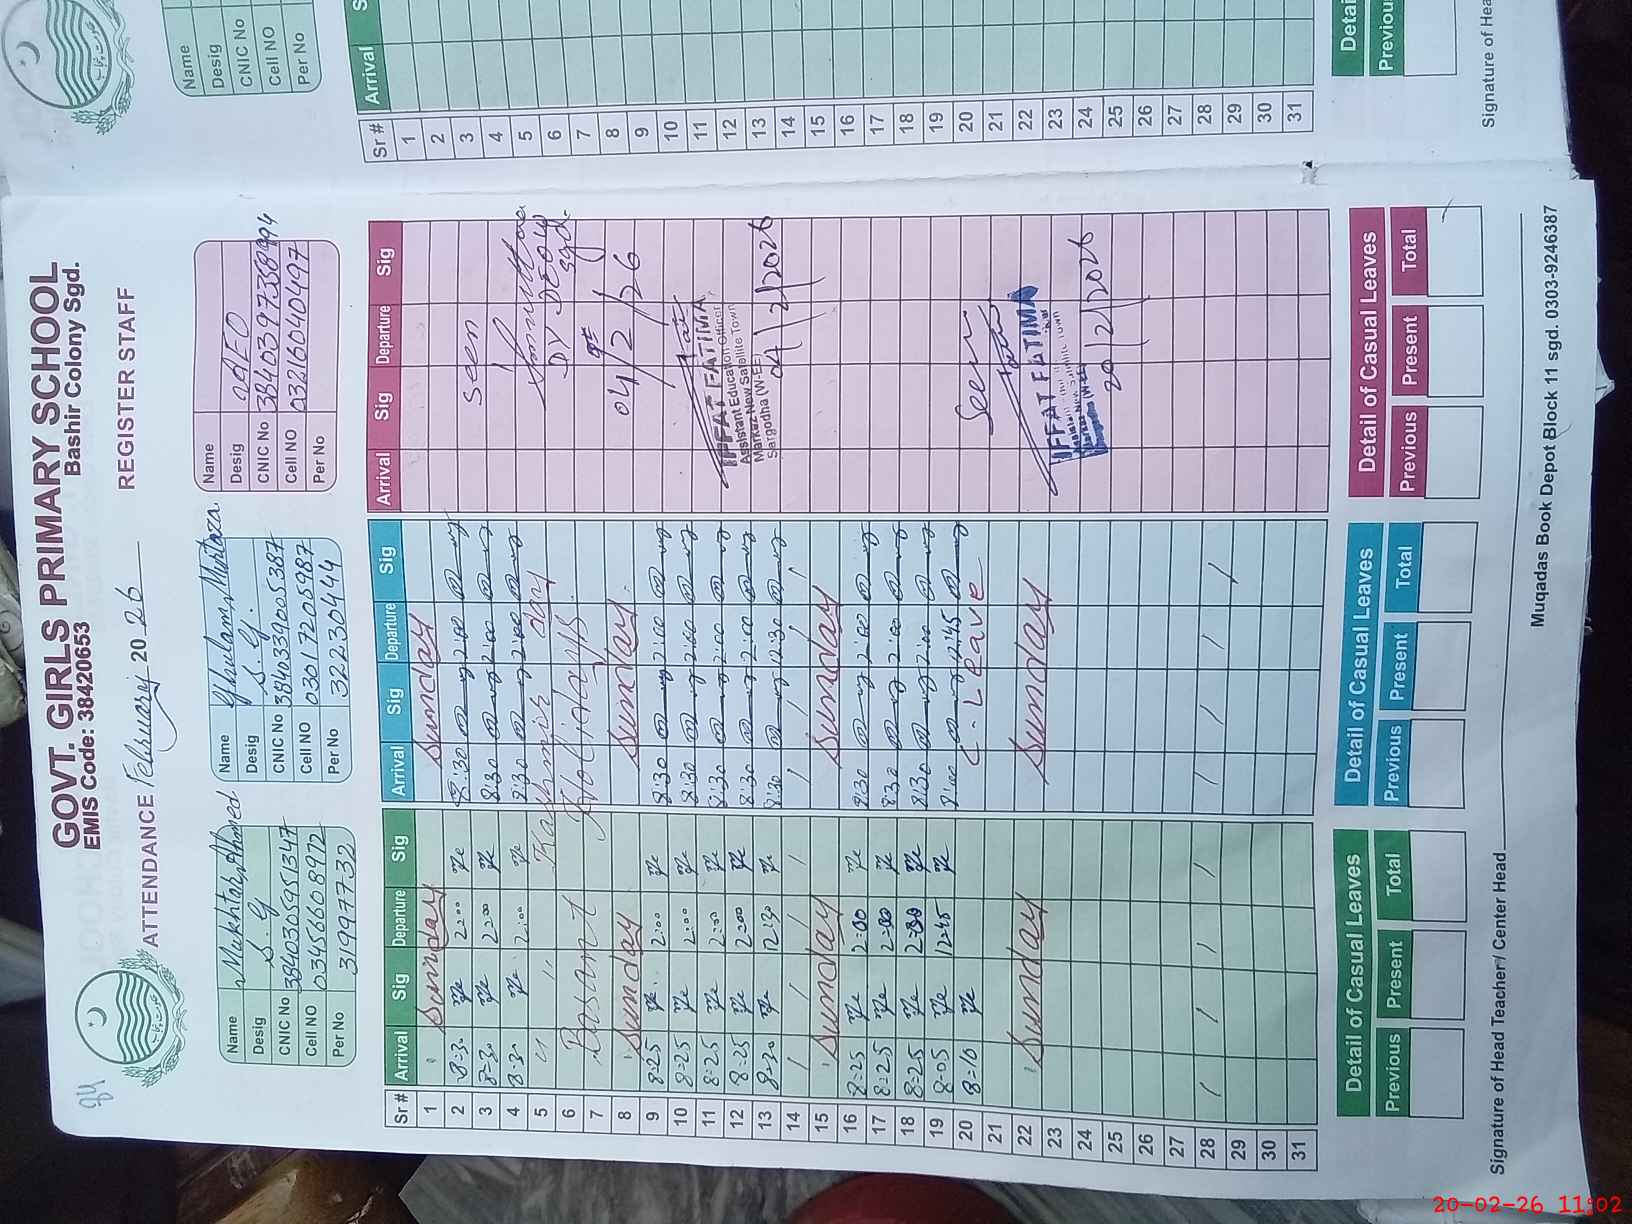 84
GOVT. GIRLS PRIMARY SCHOOL
EMIS Code: 38420653 Bashir Colony Sgd.
ATTENDANCE February 2026 REGISTER STAFF
Name Mukhtab Ahmed
Desig S. G
CNIC No 3840305951347
Cell NO 03456608972
Per No 31997732
Name Ghulam Murtaza
Desig S. G.
CNIC No 3840339005387
Cell NO 03017205987
Per No 32230444
Name
Desig AEO
CNIC No 3840397358994
Cell NO 03216040497
Per No
Sr # Arrival Sig Departure Sig Arrival Sig Departure Sig Arrival Sig Departure Sig
1 Sunday Sunday
2 8=30 2:00 8:30 2:00
3 8=30 2:00 8:30 2:00 Seen
4 8=30 2:00 8:30 2:00
5 Kashmir day DY DEO
6 sgd.
7 Basant Holidays
8 Sunday Sunday 04/2/26
9 8=25 2:00 8:30 2:00
10 8=25 2:00 8:30 2:00
11 8=25 2:00 8:30 2:00 IFFAT FATIMA
12 8=25 2:00 8:30 2:00 Assistant Education Officer
Markaz New Satellite Town
13 8=30 12:30 8:30 12:30 Sargodha (W-EE) 04/2/2026
14
15 Sunday Sunday
16 8=25 2:00 8:30 2:00
17 8=25 2:00 8:30 2:00
18 8=25 2:00 8:30 2:00
19 8-05 12:45 8:00 12:45
20 8=10 C-Leave Seen
21
22 Sunday Sunday
23 IFFAT FATIMA
24
25 20/2/2026
26
27
28
29
30
31
Detail of Casual Leaves Detail of Casual Leaves Detail of Casual Leaves
Previous Present Total Previous Present Total Previous Present Total
Signature of Head Teacher / Center Head
Muqadas Book Depot Block 11 sgd. 0303-9246387
Name
Desig
CNIC No
Cell NO
Per No
Sr # Arrival
1
2
3
4
5
6
7
8
9
10
11
12
13
14
15
16
17
18
19
20
21
22
23
24
25
26
27
28
29
30
31
Detai
Previous
Signature of Hea
20-02-26 11:02